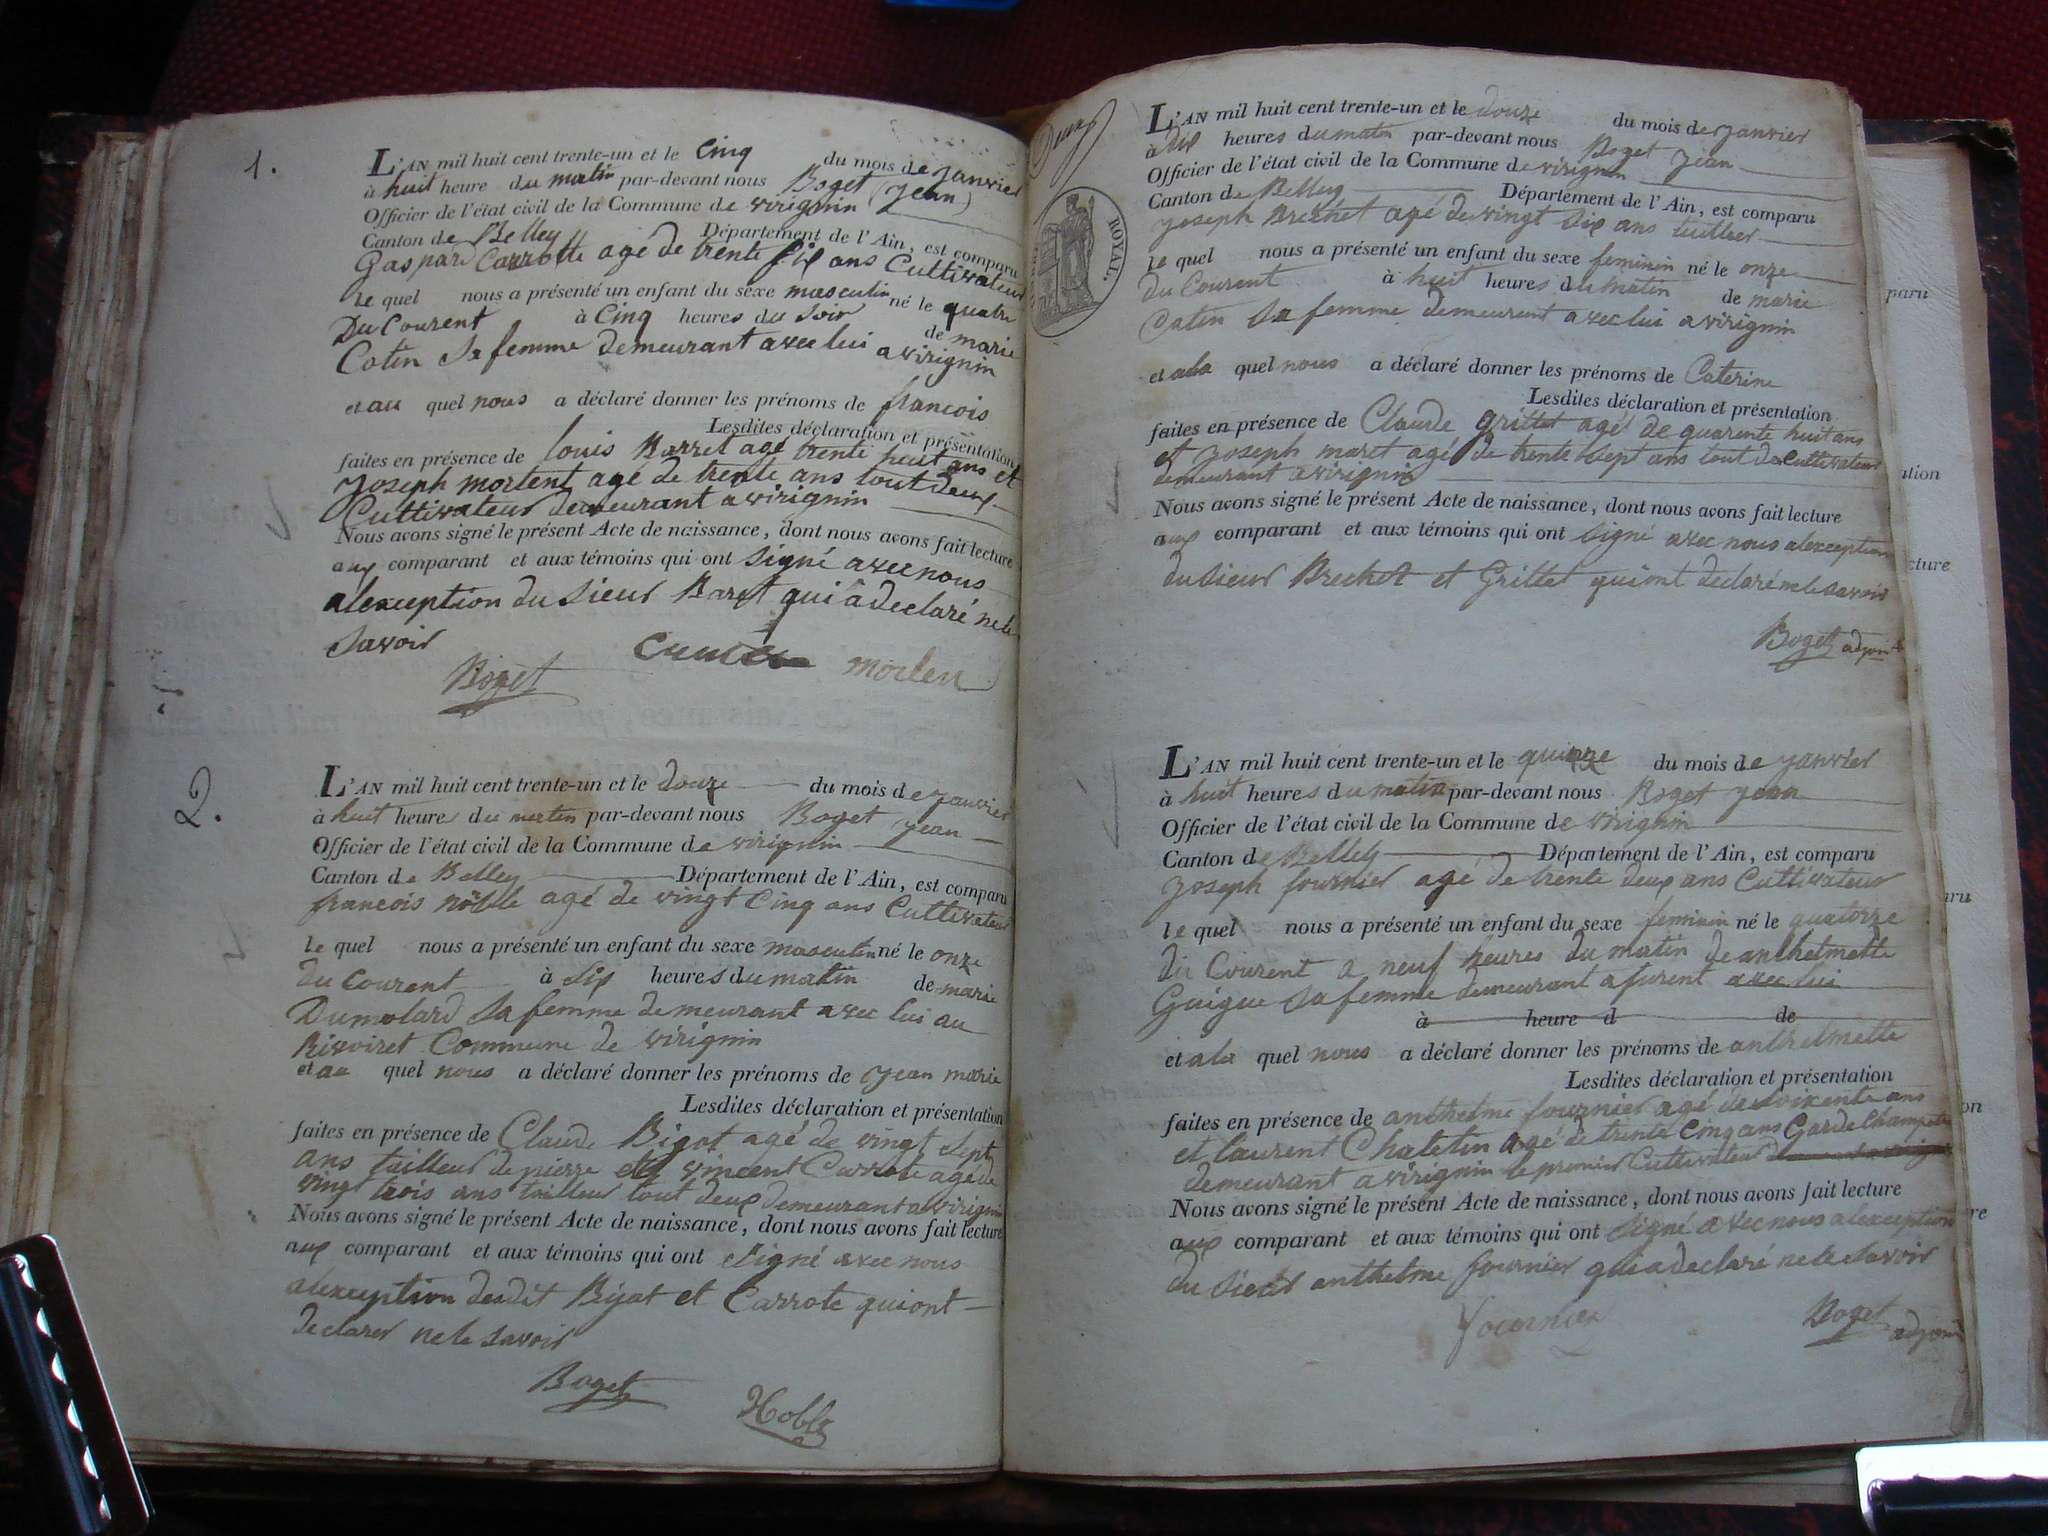 1.
L'AN mil huit cent trente-un et le cinq du mois de janvier
à huit heure du matin par-devant nous Boget (jean)
Officier de l'état civil de la Commune de virignin
Canton de Belley Département de l'Ain, est comparu
Gaspard Carrotte agé de trente six ans Cultivateur
le quel nous a présenté un enfant du sexe masculin né le quatre
Du Courent à Cinq heures du soir de marie
Cotin sa femme demeurant avec lui a virignin
et au quel nous a déclaré donner les prénoms de francois
Lesdites déclaration et présentation
faites en présence de louis Barret agé trente huit ans et
joseph mortent agé de trente ans tout deux
Cultivateur demeurant a virignin
Nous avons signé le présent Acte de naissance, dont nous avons fait lecture
aux comparant et aux témoins qui ont signé avec nous
alexception du sieur Baret qui â declaré ne le
savoir
Boget morten
2.
L'AN mil huit cent trente-un et le douze du mois de janvier
à huit heures du matin par-devant nous Boget jean
Officier de l'état civil de la Commune de virignin
Canton de Belley Département de l'Ain, est comparu
francois noble agé de vingt Cinq ans Cultivateur
le quel nous a présenté un enfant du sexe masculin né le onze
du Courent à six heures du matin de marie
Dumolard sa femme demeurant avec lui au
Rivoiret Commune de virignin
et au quel nous a déclaré donner les prénoms de jean marie
Lesdites déclaration et présentation
faites en présence de Claude Bigot agé de vingt sept
ans tailleur de pierre et vincent Carrote agé de
vingt trois ans tailleur tout deux demeurant a virignin
Nous avons signé le présent Acte de naissance, dont nous avons fait lecture
aux comparant et aux témoins qui ont signé avec nous
alexception desdit Bigot et Carrote qui ont
declarer ne le savoir
Boget Noble
Deux
ROYAL.
L'AN mil huit cent trente-un et le douze du mois de janvier
à dix heures du matin par-devant nous Boget jean
Officier de l'état civil de la Commune de virignin
Canton de Belley Département de l'Ain, est comparu
joseph Brechet agé de vingt six ans tuillier
le quel nous a présenté un enfant du sexe feminin né le onze
du Courent à huit heures du matin de marie
Catin sa femme demeurent avec lui a virignin
et ala quel nous a déclaré donner les prénoms de Caterine
Lesdites déclaration et présentation
faites en présence de Claude grillet agé de quarente huit ans
et joseph maret agé de trente sept ans tout deux Cultivateur
demeurant a virignin
Nous avons signé le présent Acte de naissance, dont nous avons fait lecture
aux comparant et aux témoins qui ont signé avec nous alexception
du sieur Brechet et Grillet qui ont declaré ne le savoir
Boget adjoint
L'AN mil huit cent trente-un et le quinze du mois de janvier
à huit heures du matin par-devant nous Boget jean
Officier de l'état civil de la Commune de virignin
Canton de Belley Département de l'Ain, est comparu
joseph fournier agé de trente deux ans Cultivateur
le quel nous a présenté un enfant du sexe feminin né le quatorze
du Courent a neuf heures du matin de anthelmette
Guigue sa femme demeurant a furent avec lui
à heure d de
et ala quel nous a déclaré donner les prénoms de anthelmette
Lesdites déclaration et présentation
faites en présence de anthelme fournier agé de soixente ans
et laurent Chatelin agé de trente Cinq ans Garde Champetre
demeurant a virignin le premier Cultivateur
Nous avons signé le présent Acte de naissance, dont nous avons fait lecture
aux comparant et aux témoins qui ont signé avec nous alexception
du sieur anthelme fournier qui a declaré ne le savoir
fournier Boget adjoint
paru
ation
cture